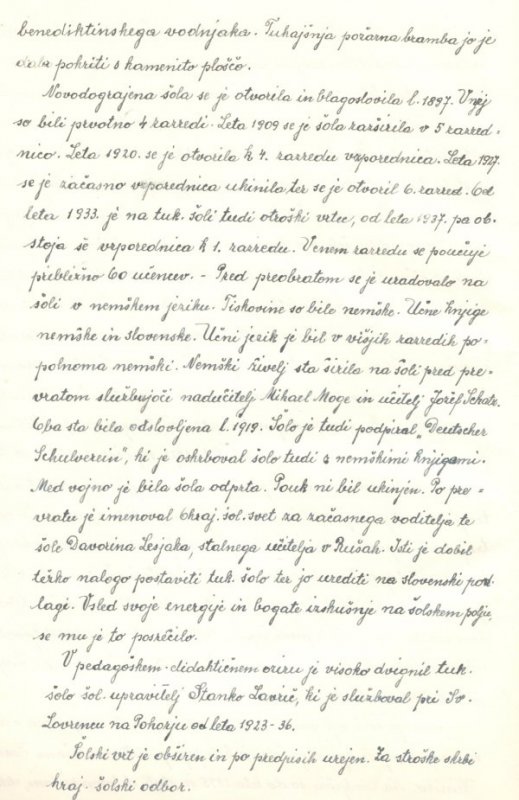 benediktinskega vodnjaka. Tukajšnja požarna bramba jo je
dala pokriti s kamenito ploščo.
Novodograjena šola se je otvorila in blagoslovila l. 1897. V njej
so bili prvotno 4 razredi. Leta 1909 se je šola razširila v 5 razred-
nico. Leta 1920. se je otvorila k 4. razredu vzporednica. Leta 1927.
se je začasno vzporednica ukinila ter se je otvoril 6. razred. Od
leta 1933. je na tuk. šoli tudi otroški vrtec, od leta 1937. pa ob-
stoja še vzporednica k 1. razredu. V enem razredu se poučuje
približno 60 učencev. - Pred preobratom se je uradovalo na
šoli v nemškem jeziku. Tiskovine so bile nemške. Učne knjige
nemške in slovenske. Učni jezik je bil v višjih razredih po-
polnoma nemški. Nemški živelj sta širila na šoli pred pre-
vratom službujoči nadučitelj Mihael Moge in učitelj Jožef Schatz.
Oba sta bila odslovljena l. 1919. Šolo je tudi podpiral "Deutscher
Schulverein", ki je oskrboval šolo tudi z nemškimi knjigami.
Med vojno je bila šola odprta. Pouk ni bil ukinjen. Po pre-
vratu je imenoval Okraj. šol. svet za začasnega voditelja te
šole Davorina Lesjaka, stalnega učitelja v Rušah. Isti je dobil
težko nalogo postaviti tuk. šolo ter jo urediti na slovenski pod-
lagi. Vsled svoje energije in bogate izskušnje na šolskem polju,
se mu je to posrečilo.
V pedagoškem-didaktičnem oziru je visoko dvignil tuk.
šolo šol. upravitelj Stanko Lavrič, ki je služboval pri Sv.
Lovrencu na Pohorju od leta 1923-36.
Šolski vrt je obširen in po predpisih urejen. Za stroške skrbi
kraj. šolski odbor.